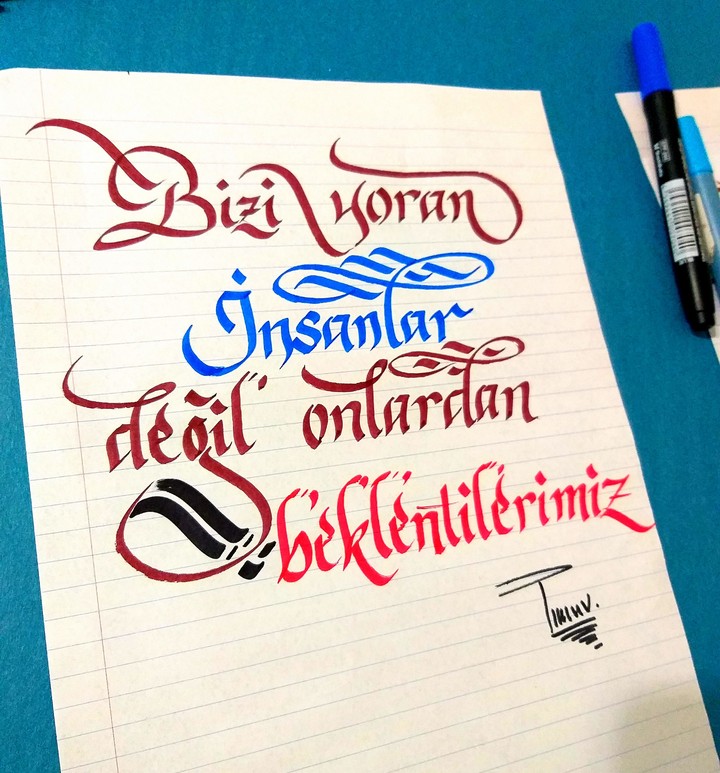 Bizi yoran
İnsanlar
değil onlardan
beklentilerimiz